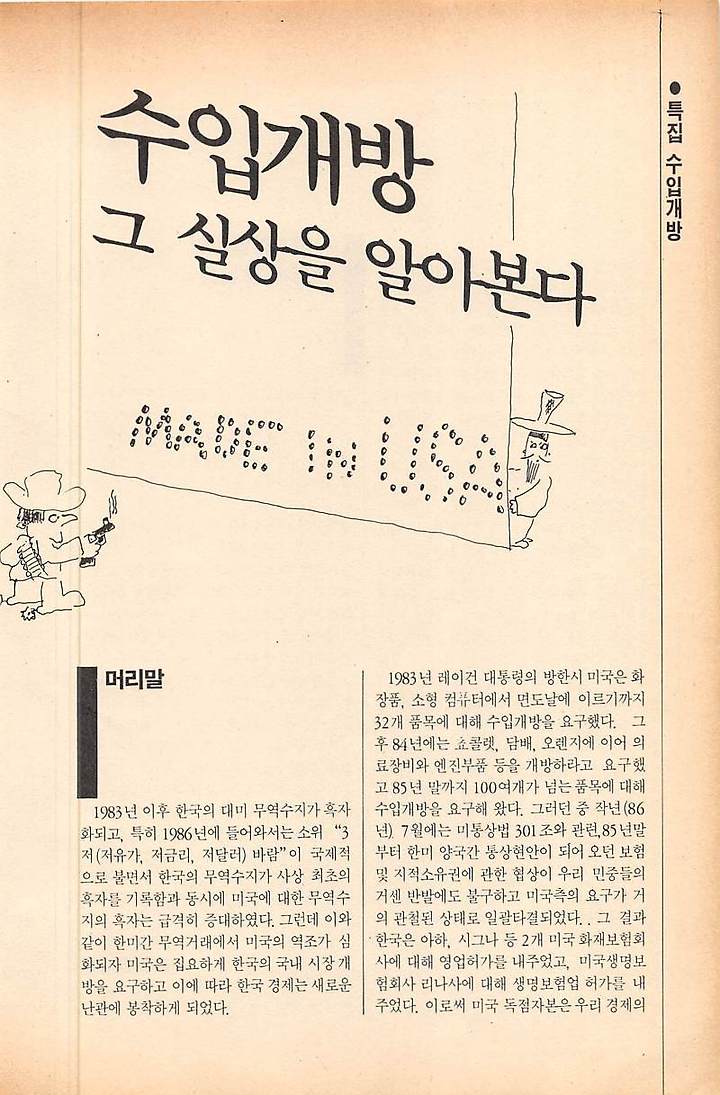 ● 특집 수입개방
수입개방
그 실상을 알아본다
MADE IN USA
머리말
1983년 이후 한국의 대미 무역수지가 흑자
화되고, 특히 1986년에 들어와서는 소위 “3
저(저유가, 저금리, 저달러) 바람”이 국제적
으로 불면서 한국의 무역수지가 사상 최초의
흑자를 기록함과 동시에 미국에 대한 무역수
지의 흑자는 급격히 증대하였다. 그런데 이와
같이 한미간 무역거래에서 미국의 역조가 심
화되자 미국은 집요하게 한국의 국내 시장 개
방을 요구하고 이에 따라 한국 경제는 새로운
난관에 봉착하게 되었다.
1983년 레이건 대통령의 방한시 미국은 화
장품, 소형 컴퓨터에서 면도날에 이르기까지
32개 품목에 대해 수입개방을 요구했다. 그
후 84년에는 쵸콜렛, 담배, 오렌지에 이어 의
료장비와 엔진부품 등을 개방하라고 요구했
고 85년 말까지 100여개가 넘는 품목에 대해
수입개방을 요구해 왔다. 그러던 중 작년(86
년) 7월에는 미통상법 301조와 관련,85년말
부터 한미 양국간 통상현안이 되어 오던 보험
및 지적소유권에 관한 협상이 우리 민중들의
거센 반발에도 불구하고 미국측의 요구가 거
의 관철된 상태로 일괄타결되었다. 그 결과
한국은 아하, 시그나 등 2개 미국 화재보험회
사에 대해 영업허가를 내주었고, 미국생명보
험회사 리나사에 대해 생명보험업 허가를 내
주었다. 이로써 미국 독점자본은 우리 경제의